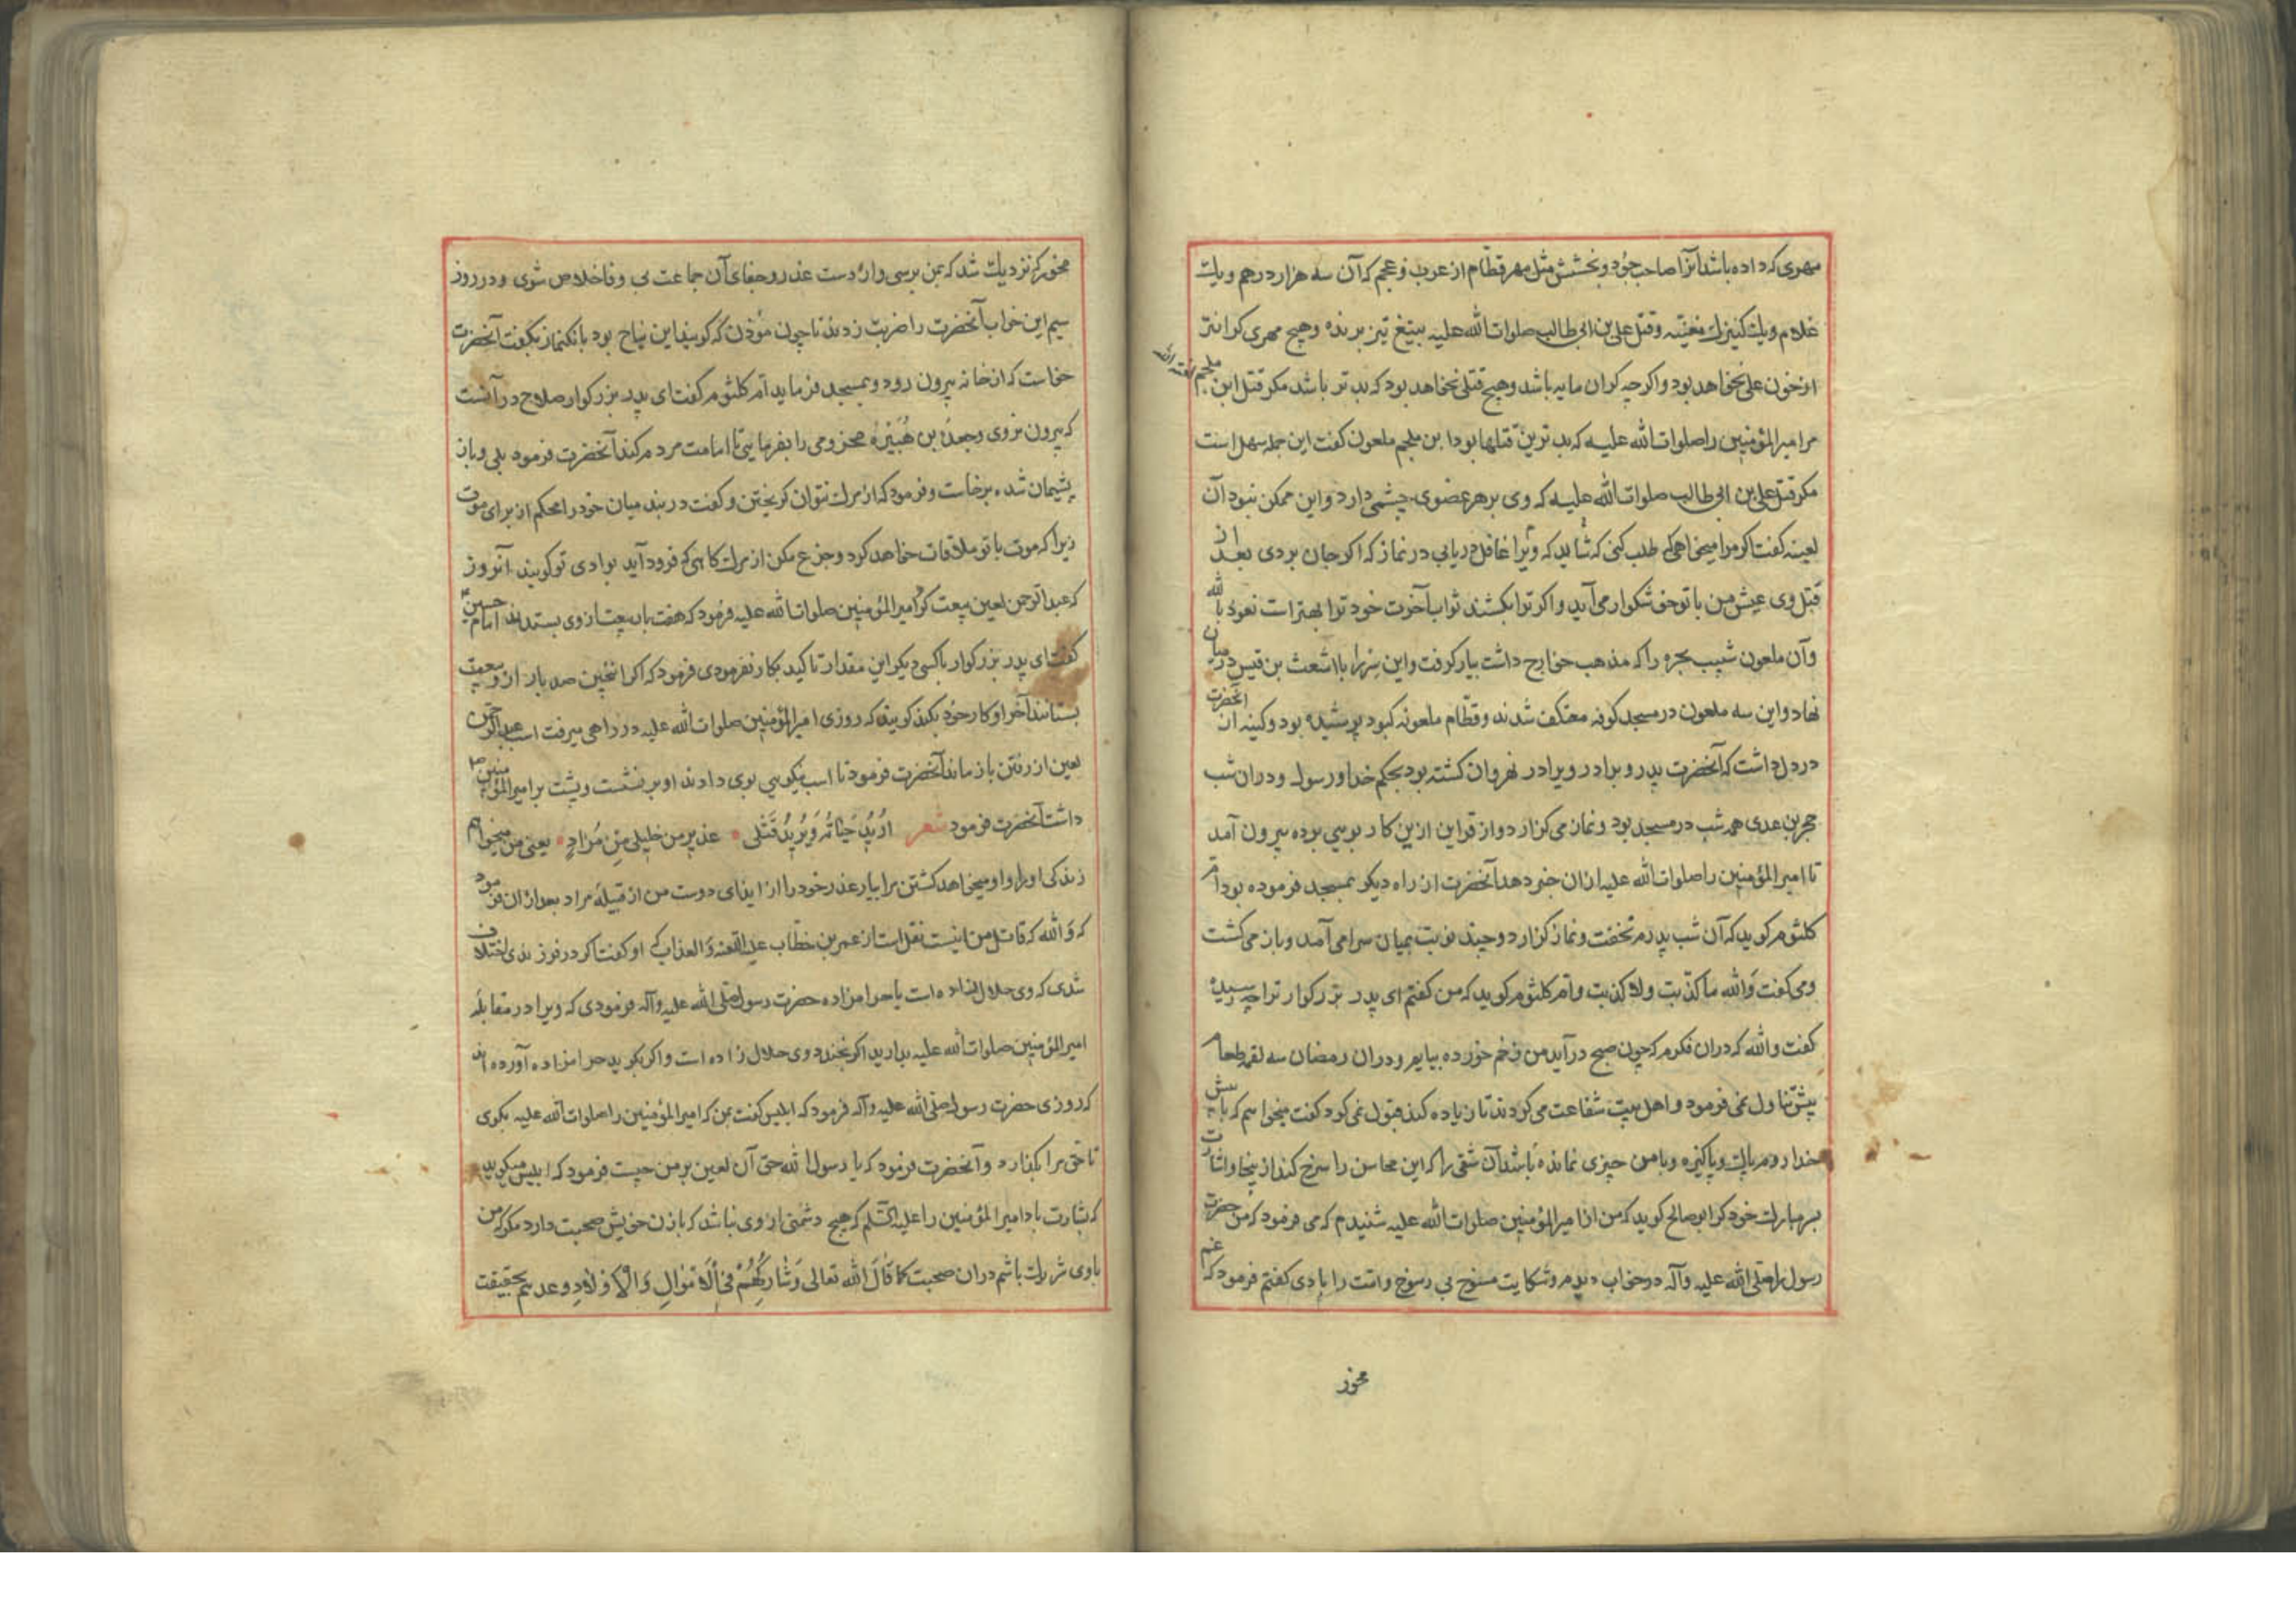 مهری که داده باشد آنرا صاحب جود و بخشش مثل مهر قطام از عرب و عجم که آن سه هزار درهم و یک
غلام و یک کنیزک مغنیه و قتل علی بن ابی طالب صلوات الله علیه بتیغ تیز برنده و هیچ مهری گرانتر
از خون علی نخواهد بود و اگر چه گران مایه باشد و هیچ قتلی نخواهد بود که بدتر باشد مگر قتل ابن ملجم لعنه الله
مر امیر المؤمنین را صلوات الله علیه که بدترین قتلها بود ابن ملجم ملعون گفت این جمله سهل است
مگر قتل علی بن ابی طالب صلوات الله علیه که وی بر هر عضوی چشمی دارد و این ممکن نبود آن
لعینه گفت اگر مرا میخواهی طلب کنی که شاید که ویرا غافل دریابی در نماز که اگر جان بردی بعد از
قتل وی عیش من با تو خوشگوار می آید و اگر ترا بکشند ثواب آخرت خود ترا بهترست نعوذ بالله
و آن ملعون شبیب بجره را که مذهب خوارج داشت بیار گرفت و این سر را با اشعث بن قیس در میان
نهاد و این سه ملعون در مسجد کوفه معتکف شدند و قطام ملعونه کبود پوشیده بود و کینه آن آنحضرت
در دل داشت که آنحضرت پدر و برادر ویرا در نهروان کشته بود بحکم خدا و رسول و در آن شب
حجر بن عدی همه شب در مسجد بود و نماز می گزارد و از قراین ازین کار بویی بوده بیرون آمد
تا امیر المؤمنین را صلوات الله علیه ازان خبر دهد آنحضرت از راه دیگر بمسجد فرموده بود ام
کلثوم گوید که آن شب پدرم نخفت و نماز گزارد و چند نوبت بمیان سرا می آمد و باز می گشت
و می گفت والله ما کذبت ولا کذبت و ام کلثوم گوید که من گفتم ای پدر بزرگوار ترا چه رسیده
گفت والله که دران فکرم که چون صبح درآید من زخم خورده بیایم و دران رمضان سه لقمه طعام
بیش تناول نمی فرمود و اهل بیت شفاعت می کردند تا زیاده کند قبول نمی کرد گفت میخواهم که پیش
خدا روم پاک و پاکیزه و با من چیزی نمانده باشد آن شقی را که این محاسن را سرخ کند از ینجا و اشارت
بسر مبارک خود کرد ابو صالح گوید که من از امیر المؤمنین صلوات الله علیه شنیدم که می فرمود که من حضرت
رسول را صلی الله علیه و آله در خواب دیدم و شکایت امت را با وی گفتم فرمود که غم
مخور
مخور که نزدیک شد که بمن برسی و از دست غدر و جفای آن جماعت بی وفا خلاص شوی و در روز
سیم این خواب آنحضرت را ضربت زدند تا چون مؤذن که گویند ابن نباح بود بانگ نماز بگفت آنحضرت
خواست که از خانه بیرون رود و بمسجد فرماید ام کلثوم گفت ای پدر بزرگوار صلاح در آنست
که بیرون نروی و جعدة بن هبیرة مخزومی را بفرمایی تا امامت مردم کند آنحضرت فرمود بلی و باز
پشیمان شده برخاست و فرمود که از مرگ نتوان گریختن و گفت در بند میان خود را محکم از برای موت
زیرا که موت با تو ملاقات خواهد کرد و جزع مکن از مرگ گاهی که فرود آید بوادی تو گویند آنروز
که عبد الرحمن لعین بیعت کرد امیر المؤمنین صلوات الله علیه فرمود که هفت بار بیعت از وی بستدند امام حسین
گفت ای پدر بزرگوار با کسی دیگر این مقدار تاکید بکار نفرمودی فرمود که اگر اینچنین صد بار ازو بیعت
بستانند آخر او کار خود بکند گویند که روزی امیر المؤمنین صلوات الله علیه در راهی میرفت اسب عبد الرحمن
لعین از رفتن باز ماند آنحضرت فرمود تا اسب نیکویی بوی دادند او بر نشست و پشت بر امیر المؤمنین
داشت آنحضرت فرمود شعر اُرِیدُ حَیاتَهُ وَیُرِیدُ قَتْلی ٭ عذیر من خلیلی مِن مُراد ٭ یعنی من میخواهم
زندگی او را و او میخواهد کشتن مرا بیار عذر خود را از ابنای دوست من از قبیله مراد بعد ازان فرمود
که والله که قاتل من اینست نقل است از عمر بن خطاب علیه اللعنه و العذاب که او گفت اگر در فرزندی اختلاف
شدی که وی حلال زاده است یا حرامزاده حضرت رسول صلی الله علیه و آله فرمودی که ویرا در مقابله
امیر المؤمنین صلوات الله علیه بدارید اگر بخندد وی حلال زاده است و اگر بگرید حرامزاده آورده اند
که روزی حضرت رسول صلی الله علیه و آله فرمود که ابلیس گفت بمن که امیر المؤمنین را صلوات الله علیه بگوی
تا حق مرا بگذارد و آنحضرت فرمود که یا رسول الله حق آن لعین بر من چیست فرمود که ابلیس میگوید
که بشارت باد امیر المؤمنین را علیه السلم که هیچ دشمنی از وی نباشد که با زن خویش صحبت دارد مگر که من
با وی شریک باشم دران صحبت کما قال الله تعالی وَشارِکْهُمْ فِی الْاَمْوالِ وَالْاَوْلادِ وعدهم بحقیقت